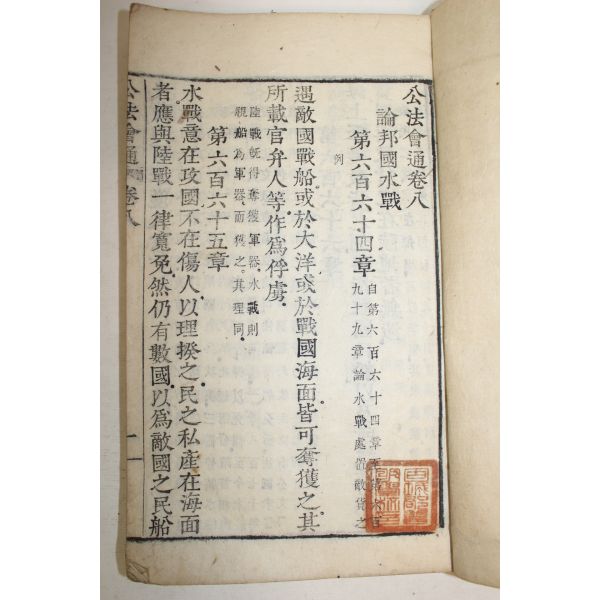 公法會通卷八
論邦國水戰
第六百六十四章 自第六百六十四章至第六百
九十九章論水戰處置敵貨之
例
遇敵國戰船或於大洋或於戰國海面皆可奪獲之其
所載官弁人等作為俘虜
陸戰旣得奪獲軍器水戰則
視船為軍器而獲之其理同
第六百六十五章
水戰意在攻國不在傷人以理揆之民之私產在海面
者應與陸戰一律寬免然仍有數國以為敵國之民船
公法會通 卷八 一